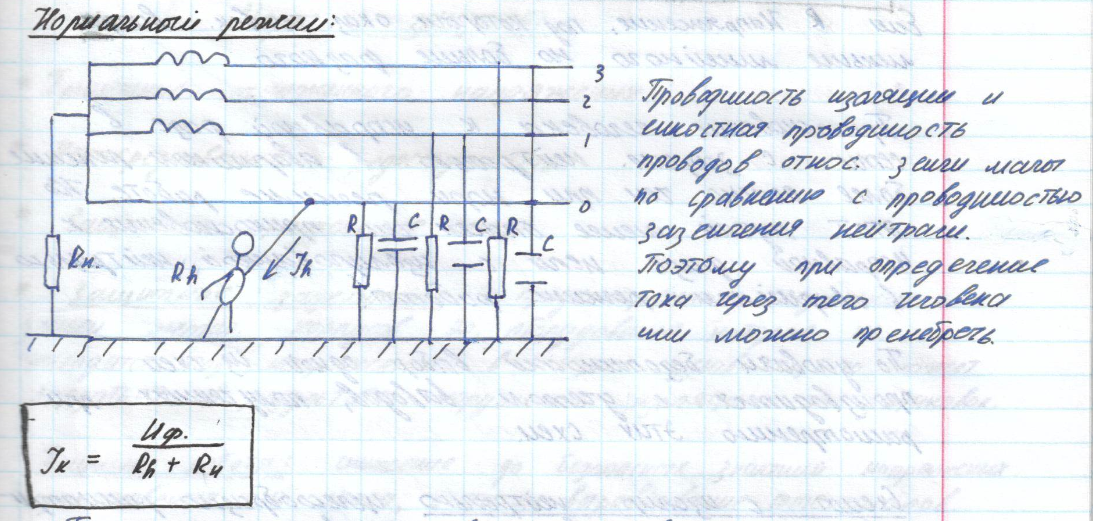 Нормальный режим:
3
2
1
0
Rн.
Rh
Ih
R
C
R
C
R
C
Проводимость изоляции и
емкостная проводимость
проводов относ. земли малы
по сравнению с проводимостью
заземления нейтрали.
Поэтому при определение
тока через тело человека
ими можно пренебречь.
Iк = Uф. / Rh + Rн